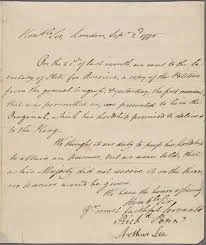 London, Sept. 2d 1775
On the 21st of last month we sent to the Se-
cretary of State for America, a copy of the Petition
from the general Congress; & yesterday, the first moment,
that was permitted us, we presented to him the
Original, which his Lordship promised to deliver
to the King.
We thought it our duty to press his Lordship
to obtain an answer, but we were told, that
as his Majesty did not receive it on the throne
no answer would be given.
We have the honor of being
Sir
Yr. most faithful Servants
Richd. Penn
Arthur Lee